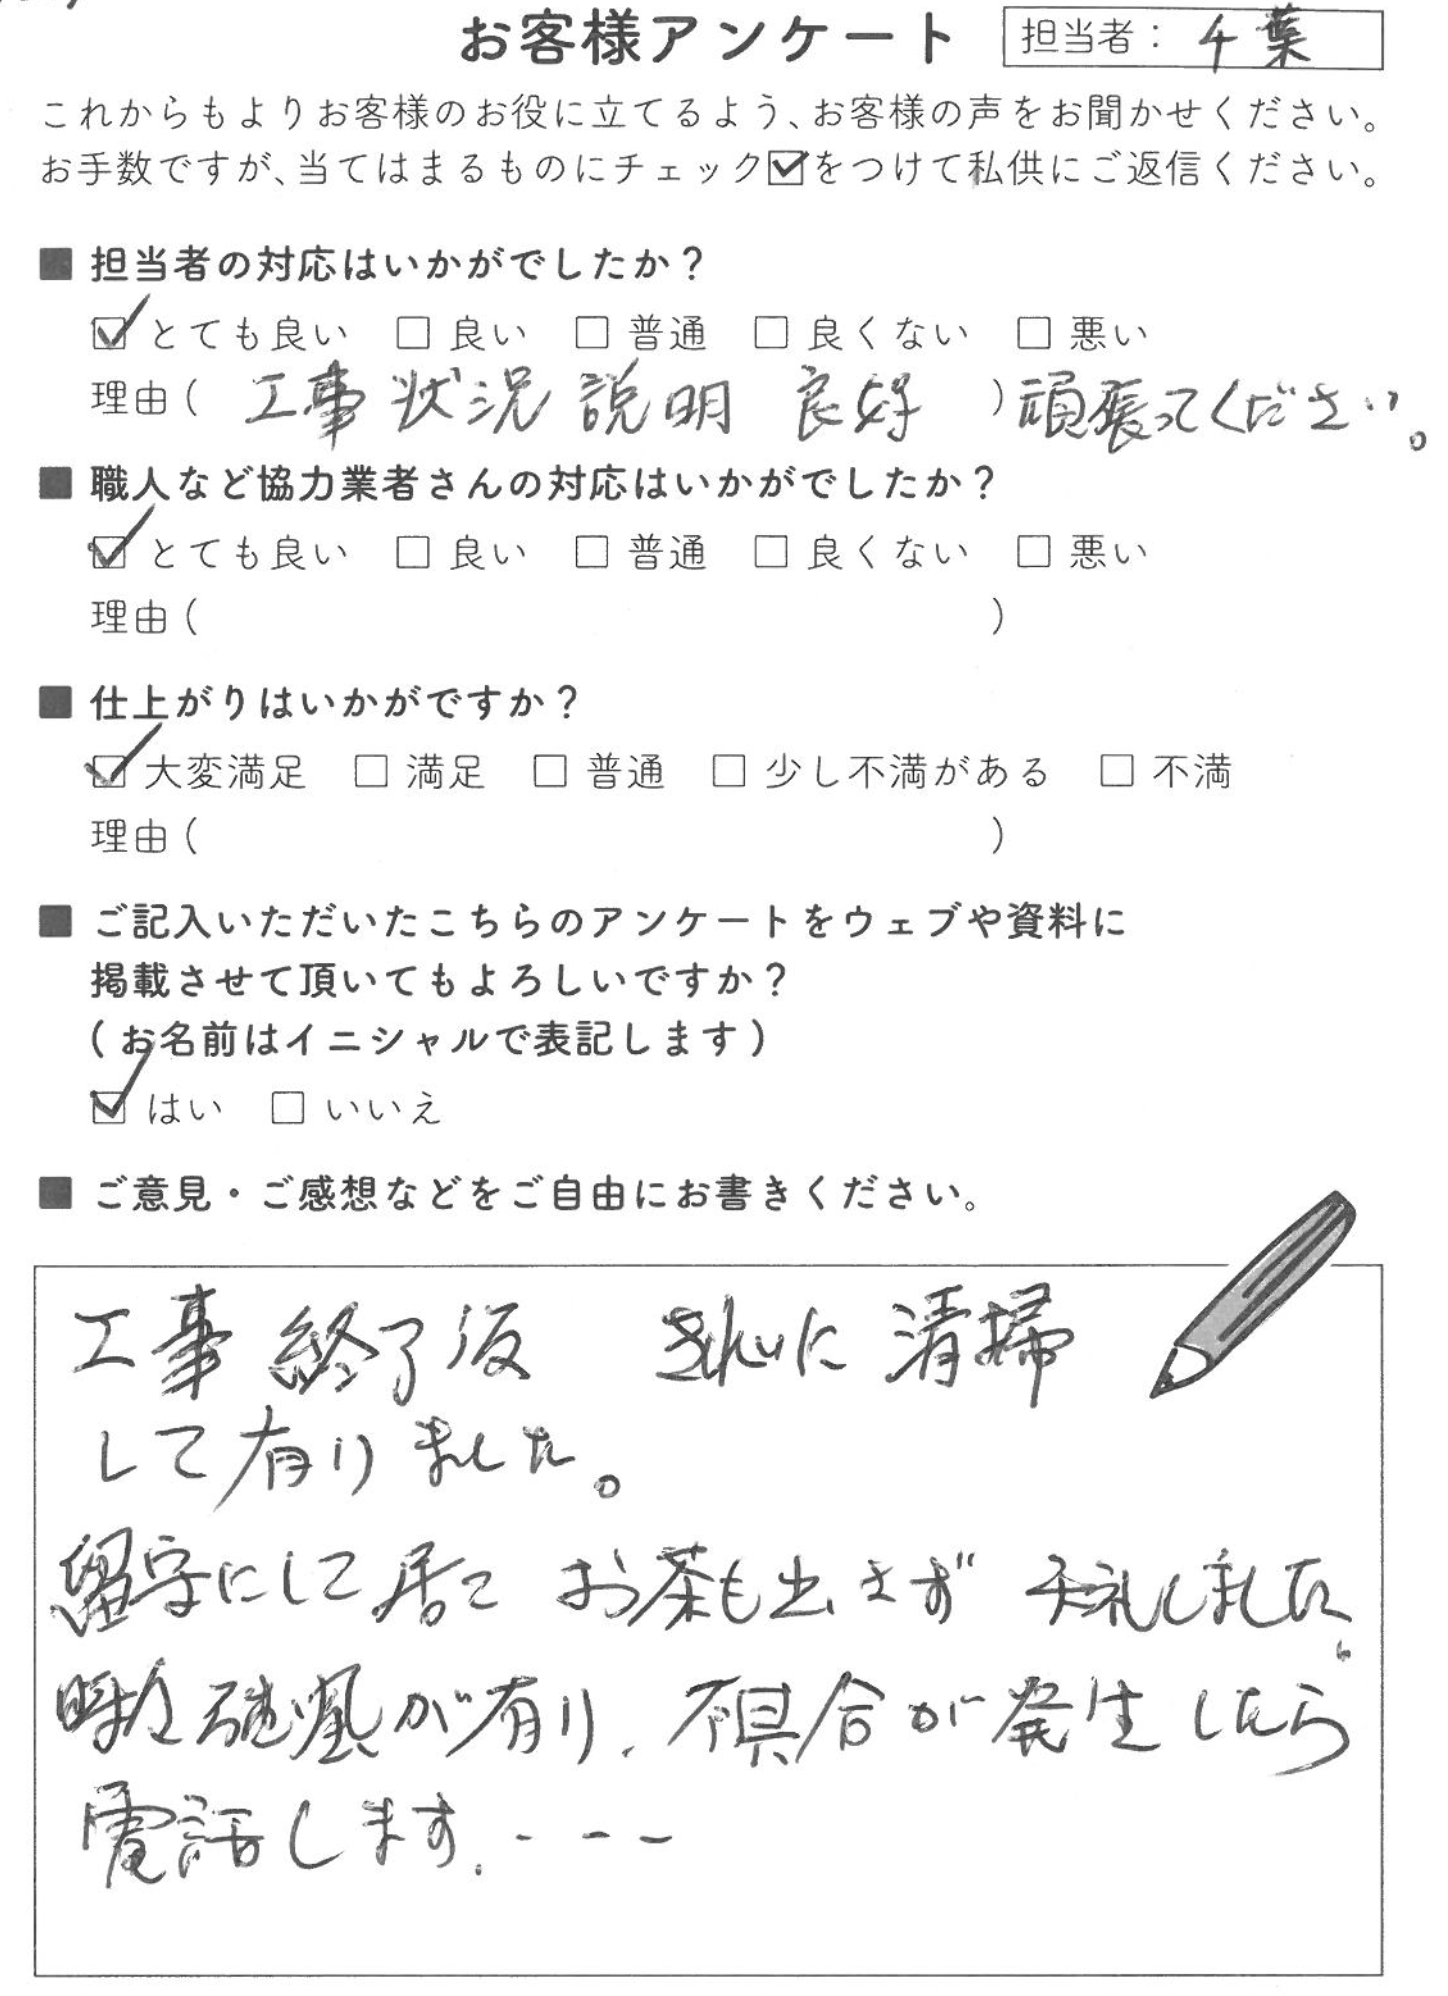 お客様アンケート 担当者： 千葉
これからもよりお客様のお役に立てるよう、お客様の声をお聞かせください。
お手数ですが、当てはまるものにチェック☑をつけて私供にご返信ください。
■ 担当者の対応はいかがでしたか？
☑ とても良い □ 良い □ 普通 □ 良くない □ 悪い
理由（ 工事状況説明 良好 ）頑張ってください。
■ 職人など協力業者さんの対応はいかがでしたか？
☑ とても良い □ 良い □ 普通 □ 良くない □ 悪い
理由（ ）
■ 仕上がりはいかがですか？
☑ 大変満足 □ 満足 □ 普通 □ 少し不満がある □ 不満
理由（ ）
■ ご記入いただいたこちらのアンケートをウェブや資料に
掲載させて頂いてもよろしいですか？
（お名前はイニシャルで表記します）
☑ はい □ いいえ
■ ご意見・ご感想などをご自由にお書きください。
工事 終了後 きれいに 清掃
して有りました。
留守にして居て お茶も出さず 失礼しました。
時々強風が有り、不具合が発生したら
電話します。---